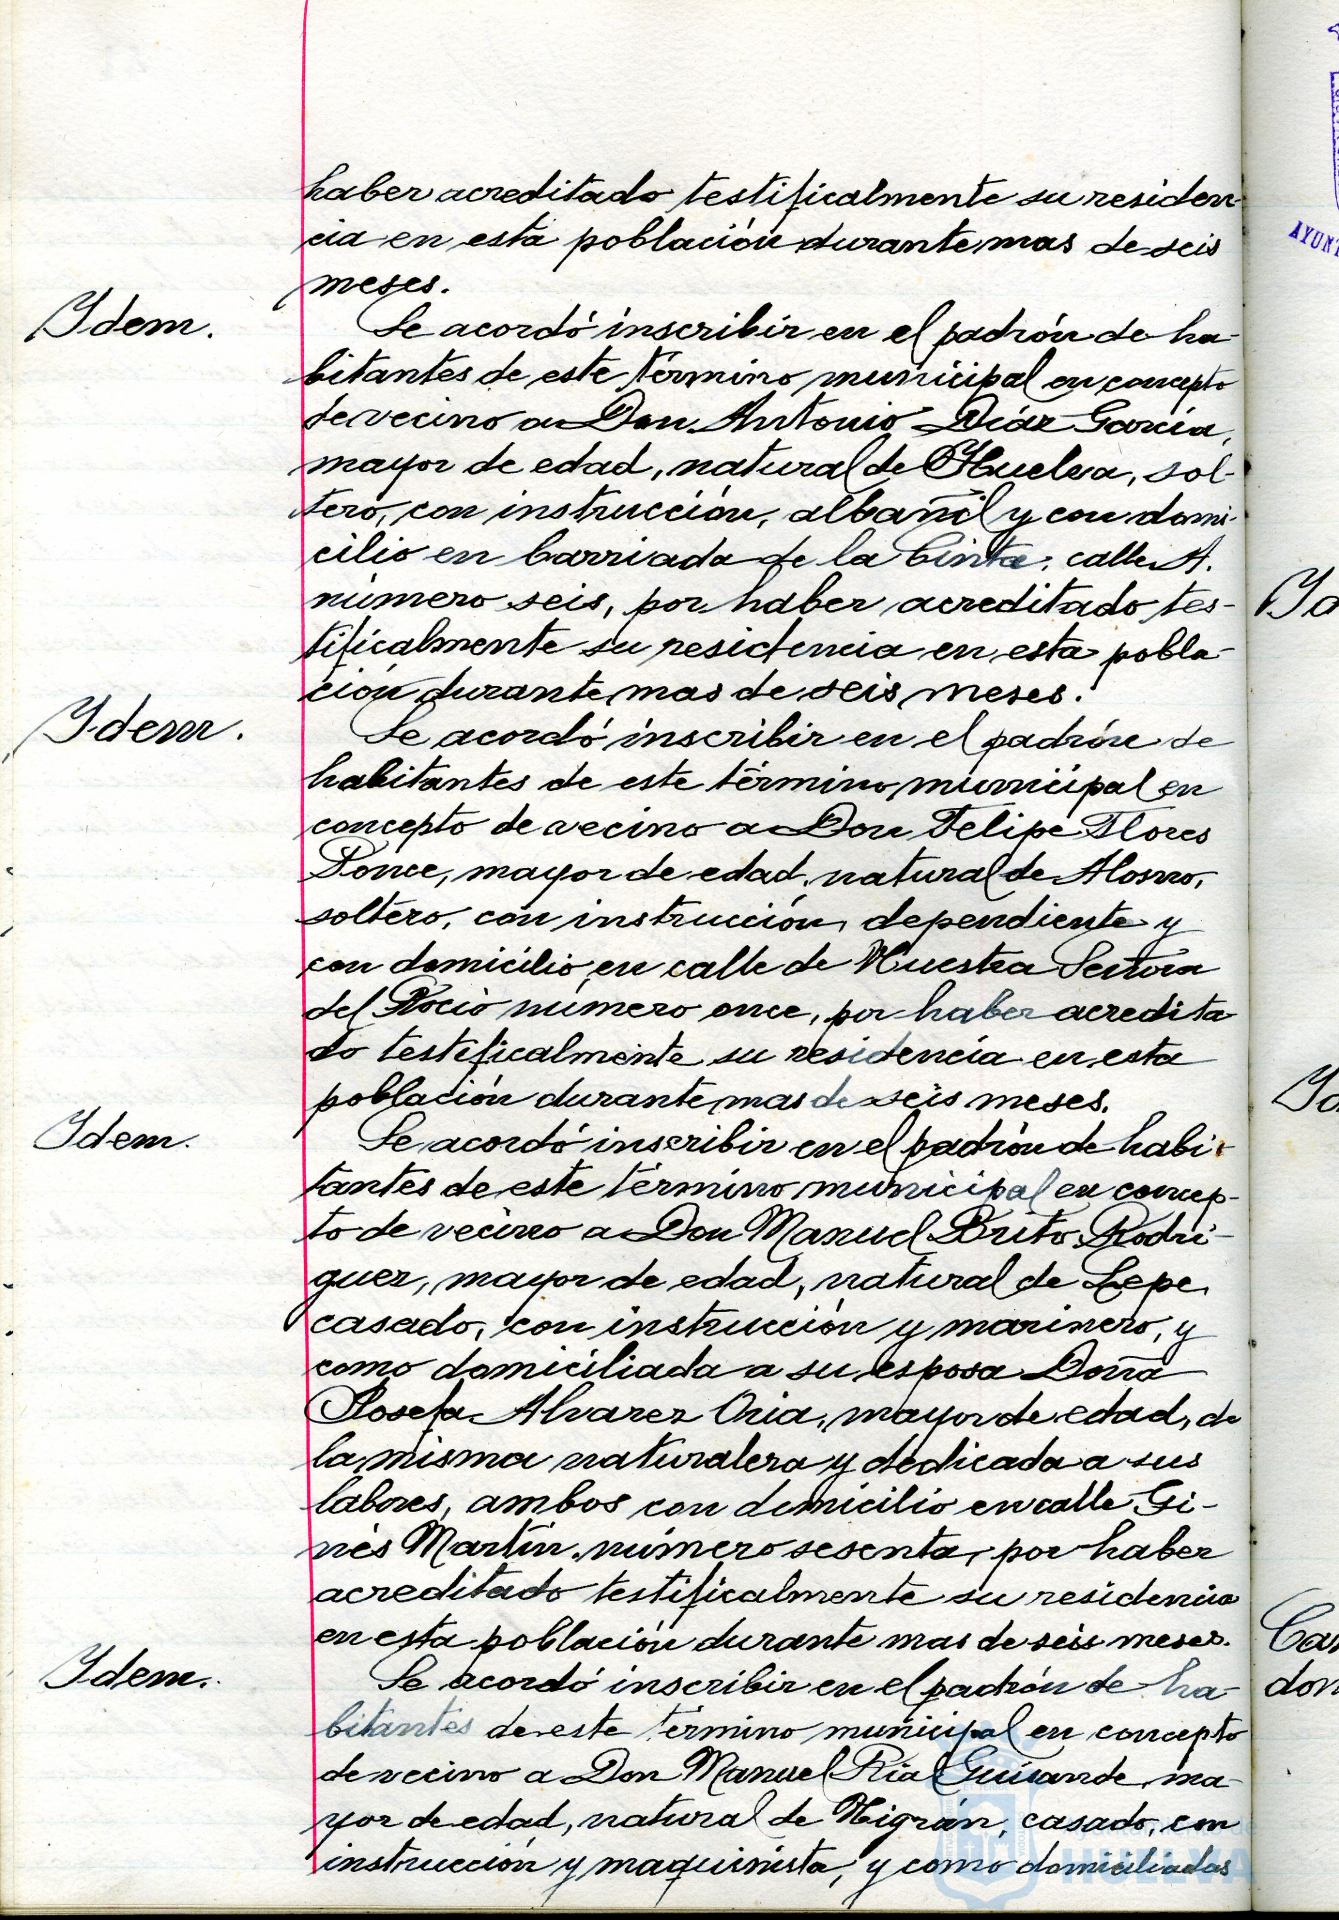 haber acreditado testificalmente su residen-
cia en esta población durante mas de seis
meses.
Idem.
Se acordó inscribir en el padrón de ha-
bitantes de este término municipal en concepto
de vecino a Don Antonio Diáz García,
mayor de edad, natural de Huelva, sol-
tero, con instrucción, albañil y con domi-
cilio en barriada de la Cinta, calle A.
número seis, por haber acreditado tes-
tificalmente su residencia en esta pobla-
ción durante mas de seis meses.
Idem.
Se acordó inscribir en el padrón de
habitantes de este término municipal en
concepto de vecino a Don Felipe Flores
Ponce, mayor de edad, natural de Alosno,
soltero, con instrucción, dependiente y
con domicilio en calle de Nuestra Señora
del Rocio número once, por haber acredita
do testificalmente su residencia en esta
población durante mas de seis meses.
Idem.
Se acordó inscribir en el padrón de habi-
tantes de este término municipal en concep-
to de vecino a Don Manuel Brito Rodri-
guez, mayor de edad, natural de Lepe,
casado, con instrucción y marinero, y
como domiciliada a su esposa Doña
Josefa Alvarez Oria, mayor de edad, de
la misma naturaleza y dedicada a sus
labores, ambos con domicilio en calle Gi-
nés Martín, número sesenta, por haber
acreditado testificalmente su residencia
en esta población durante mas de seis meses.
Idem.
Se acordó inscribir en el padrón de ha-
bitantes de este término municipal en concepto
de vecino a Don Manuel Rial Guisande, ma-
yor de edad, natural de Nigrán, casado, con
instrucción y maquinista, y como domiciliadas
HUELVA